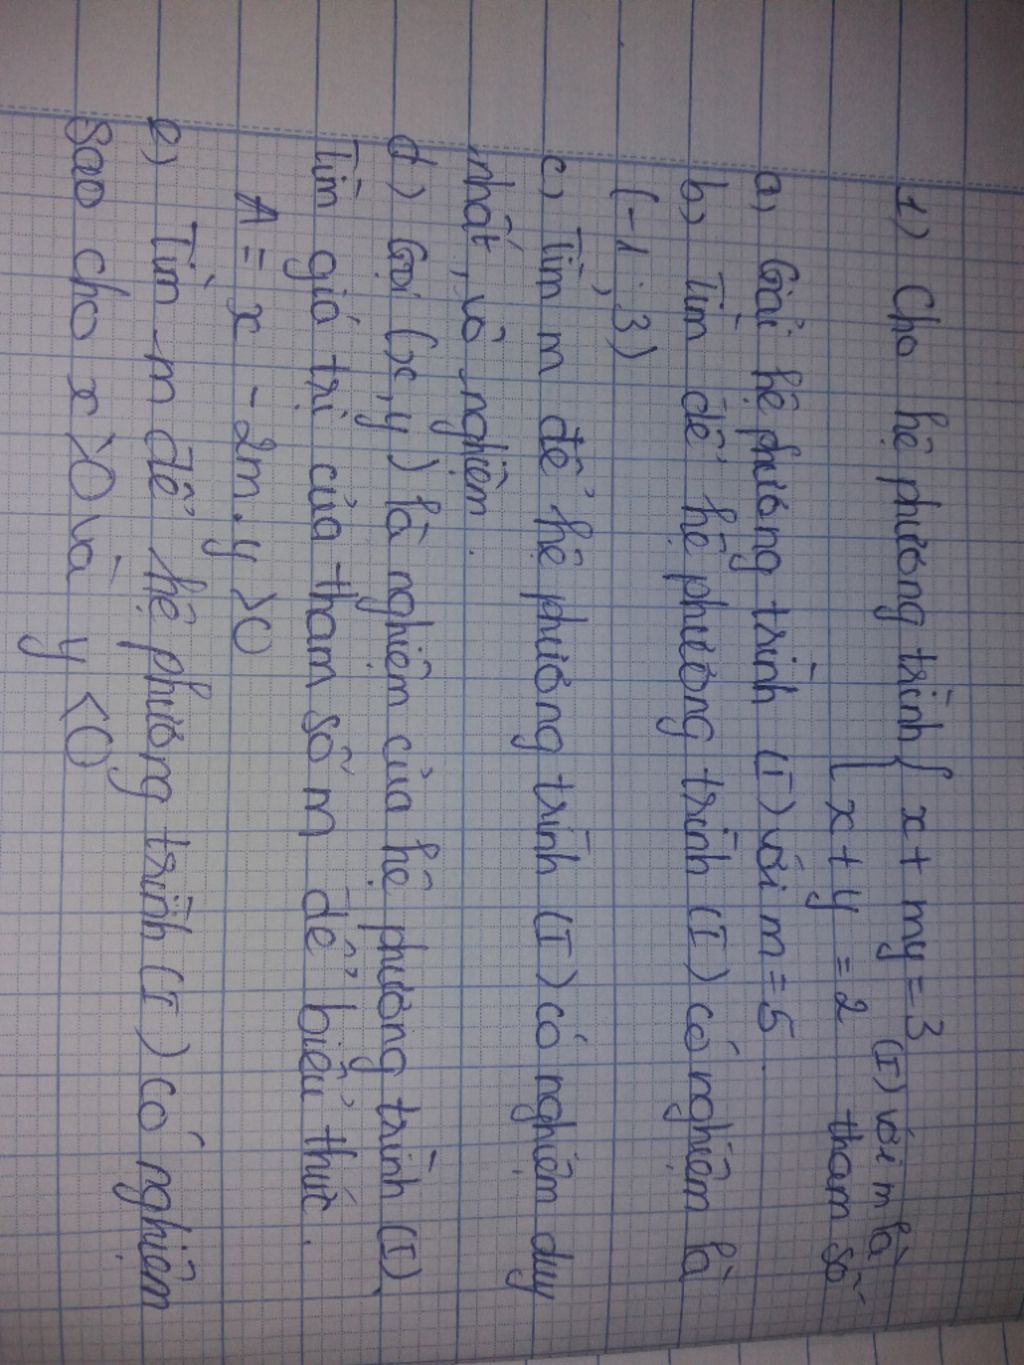 1) Cho hệ phương trình { x + my = 3 (I) với m là
{ x + y = 2 tham số
a) Giải hệ phương trình (I) với m = 5.
b) Tìm để hệ phương trình (I) có nghiệm là
(-1 ; 3)
c) Tìm m để hệ phương trình (I) có nghiệm duy
nhất, vô nghiệm.
d) Gọi (x, y) là nghiệm của hệ phương trình (I).
Tìm giá trị của tham số m để biểu thức.
A = x - 2m.y > 0
e) Tìm m để hệ phương trình (I) có nghiệm
sao cho x > 0 và y < 0